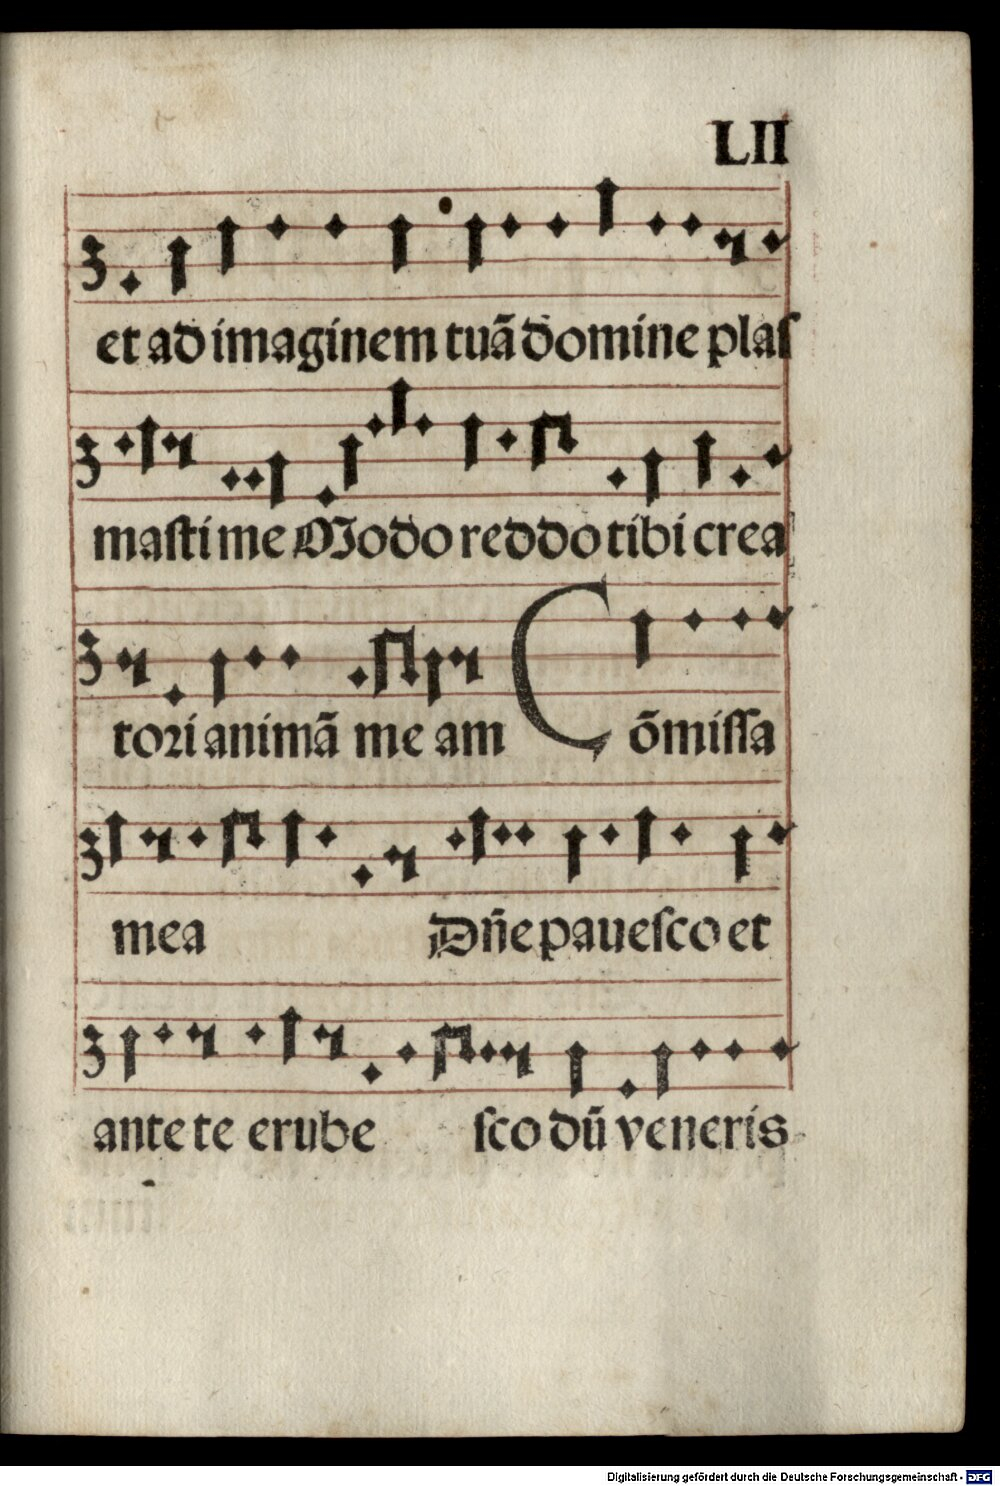 LII
et ad imaginem tuā domine plaſ
maſti me Modo reddo tibi crea
tori animā me am Cōmiſſa
mea Dn̄e paueſco et
ante te erube ſco dū veneris
Digitalisierung gefördert durch die Deutsche Forschungsgemeinschaft - DFG